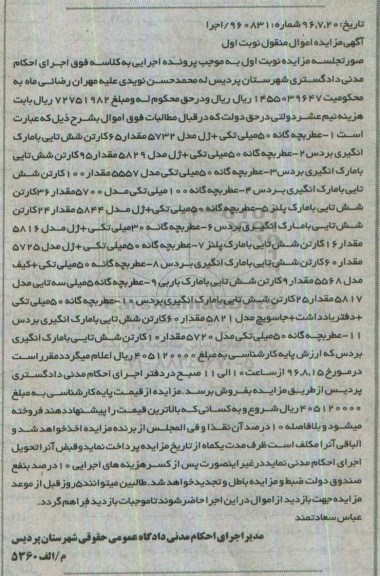 تاریخ: ۹۶,۷,۲۰ شماره: ۹۶۰۸۳۱/اجرا
آگهی مزایده اموال منقول نوبت اول
صورتجلسه مزایده نوبت اول به موجب پرونده اجرایی به کلاسه فوق اجرای احکام
مدنی دادگستری شهرستان پردیس له محمدحسن نویدی علیه مهران رضائی ماه به
محکومیت ۱۴۵۵۰۳۹۶۴۷ ریال ریال ودرحق محکوم له ومبلغ ۷۲۷۵۱۹۸۲ ریال بابت
هزینه نیم عشر دولتی درحق دولت که درقبال مطالبات فوق اموال بشرح ذیل که عبارت
است ۱-عطربچه گانه ۵۰میلی تکی +ژل مدل ۵۷۳۲ مقدار۶۵کارتن شش تایی بامارک
انگیری بردس۲-عطربچه گانه ۵۰میلی تکی +ژل مدل ۵۸۲۹ مقدار۹۵کارتن شش تایی
بامارک انگیری بردس۳-عطربچه گانه ۵۰میلی تکی مدل ۵۵۵۷مقدار۱۰۰کارتن شش
تایی بامارک انگیری بردس ۴-عطربچه گانه ۱۰۰میلی تکی مدل ۵۷۰۰مقدار۳۶کارتن
شش تایی بامارک پلنز ۵-عطربچه گانه ۵۰میلی تکی+ژل مدل ۵۸۴۴ مقدار۲۴کارتن
شش تایی بامارک انگیری بردس ۶-عطربچه گانه ۳۰میلی تکی +ژل مدل ۵۸۱۶
مقدار۱۶کارتن شش تایی بامارک پلنز ۷-عطربچه گانه ۵۰میلی تکی +ژل مدل ۵۷۲۵
مقدار۶۰کارتن شش تایی بامارک انگیری بردس ۸-عطربچه گانه ۵۰میلی تکی +کیف
مدل ۵۵۶۸مقدار۹کارتن شش تایی بامارک باربی ۹-عطربچه گانه ۵۰میلی سه تایی مدل
۵۸۱۷مقدار۲۵کارتن شش تایی بامارک انگیری بردس ۱۰-عطربچه گانه ۵۰میلی تکی
+دفتریادداشت+جاسویچ مدل ۵۸۲۱مقدار۶۰کارتن شش تایی بامارک انگیری بردس
۱۱-عطربچه گانه ۵۰میلی تکی مدل ۵۷۲۰مقدار۱۰کارتن شش تایی بامارک انگیری
بردس که ارزش پایه کارشناسی به مبلغ ۴۰۵۱۲۰۰۰۰ریال اعلام میگردد مقرراست
درمورخ ۹۶,۸,۱۵ ازساعت ۱۰الی ۱۱ صبح دردفتراجرای احکام مدنی دادگستری
پردیس ازطریق مزایده بفروش برسد. مزایده ازقیمت پایه کارشناسی به مبلغ
۴۰۵۱۲۰۰۰۰ ریال شروع و به کسانی که بالاترین قیمت را پیشنهاددهند فروخته
میشود و بلافاصله ۱۰ درصد آن نقدا و فی المجلس از برنده مزایده اخذخواهدشد و
الباقی آنرا مکلف است ظرف مدت یکماه از تاریخ مزایده پرداخت نمایدوقبض آنرا تحویل
اجرای احکام مدنی نمایددرغیراینصورت پس از کسرهزینه های اجرایی ۱۰درصد بنفع
صندوق دولت ضبط و مزایده باطل و تجدیدخواهدشد.طالبین میتوانند۵روز قبل از موعد
مزایده جهت بازدید از اموال در این اجراحاضرشوند تاموجبات بازدید فراهم گردد.
عباس سعادتمند
مدیر اجرای احکام مدنی دادگاه عمومی حقوقی شهرستان پردیس
م/الف ۵۳۶۰